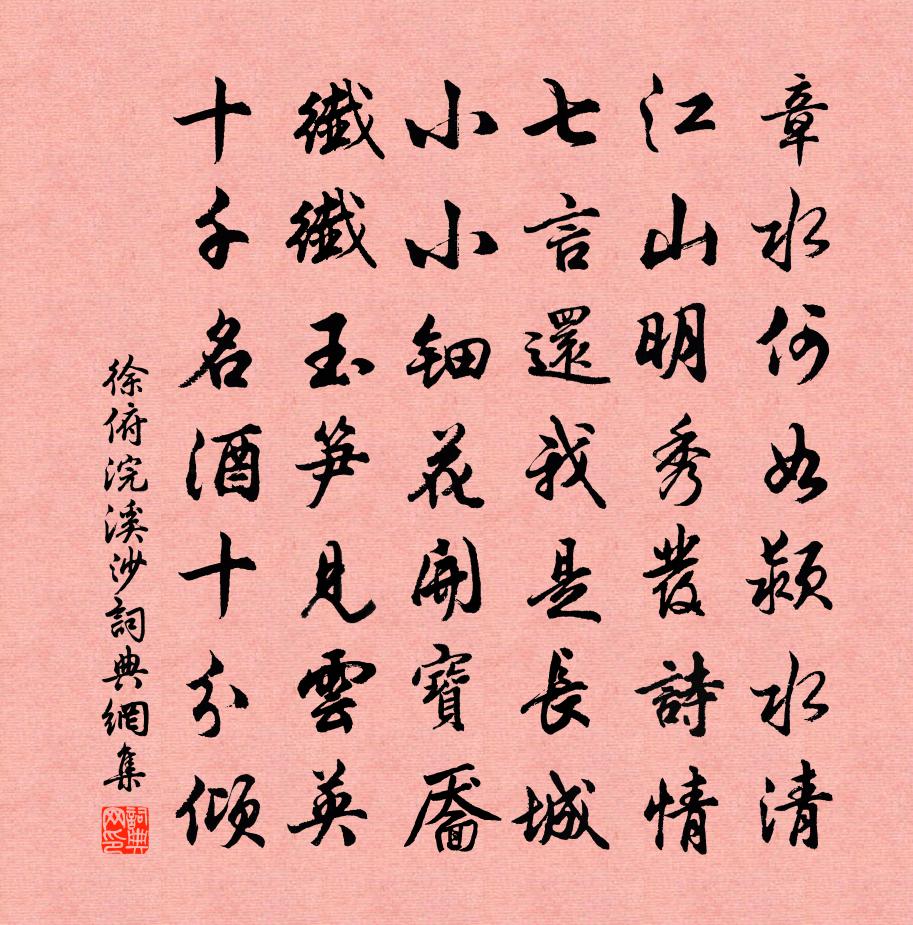 章水何如潁水清
江山明秀發詩情
七言還我是長城
小小鈿花開寶靨
纖纖玉笋見雲英
十千名酒十分傾
徐俯浣溪沙詞典網集
詞典网印